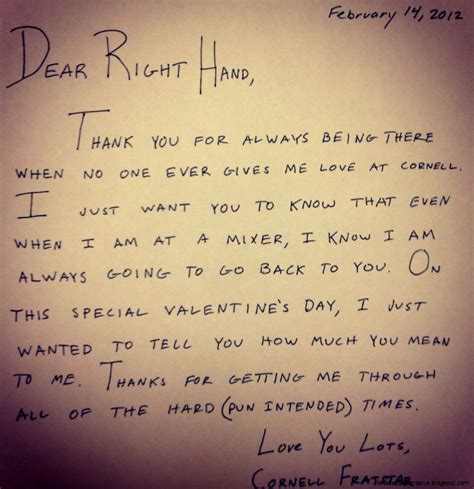 February 14, 2012
DEAR RIGHT HAND,
THANK YOU FOR ALWAYS BEING THERE
WHEN NO ONE EVER GIVES ME LOVE AT CORNELL.
I JUST WANT YOU TO KNOW THAT EVEN
WHEN I AM AT A MIXER, I KNOW I AM
ALWAYS GOING TO GO BACK TO YOU. ON
THIS SPECIAL VALENTINE'S DAY, I JUST
WANTED TO TELL YOU HOW MUCH YOU MEAN
TO ME. THANKS FOR GETTING ME THROUGH
ALL OF THE HARD (PUN INTENDED) TIMES.
LOVE YOU LOTS,
CORNELL FRATSTAR